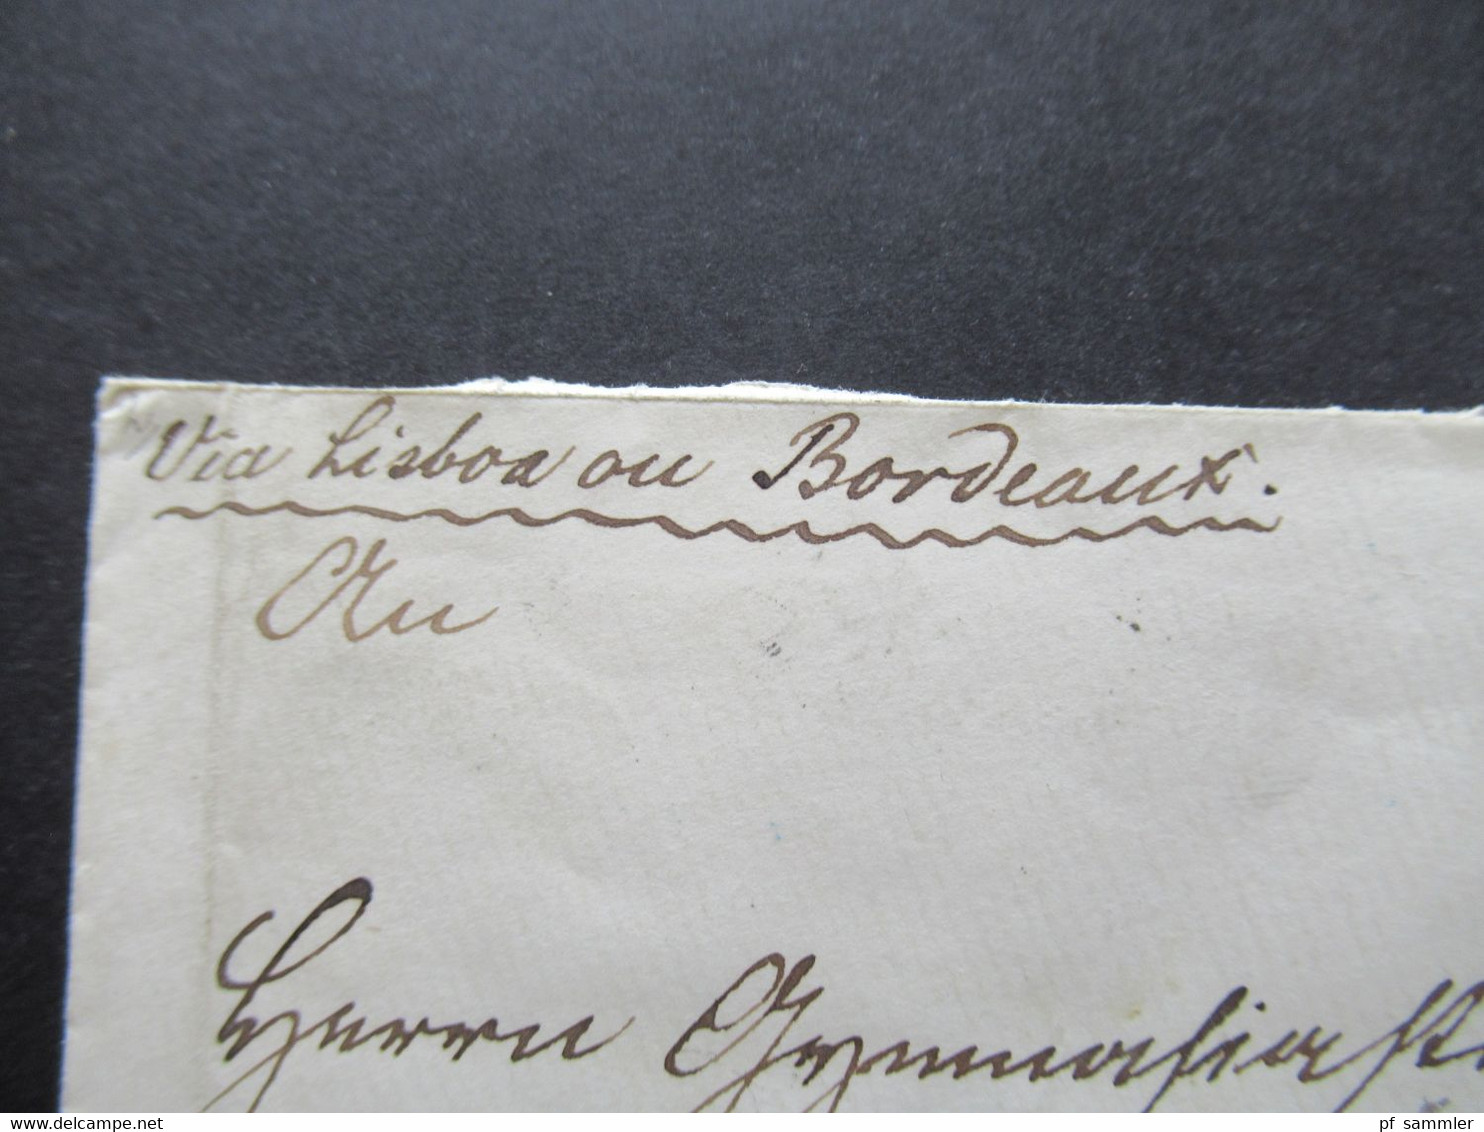 Via Lisboa ou Bordeaux.
An
Herrn Gymnasiast
delcampe.net
pf_sammler